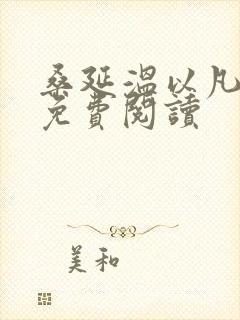 桑延溫以凡
免費閱讀
美和